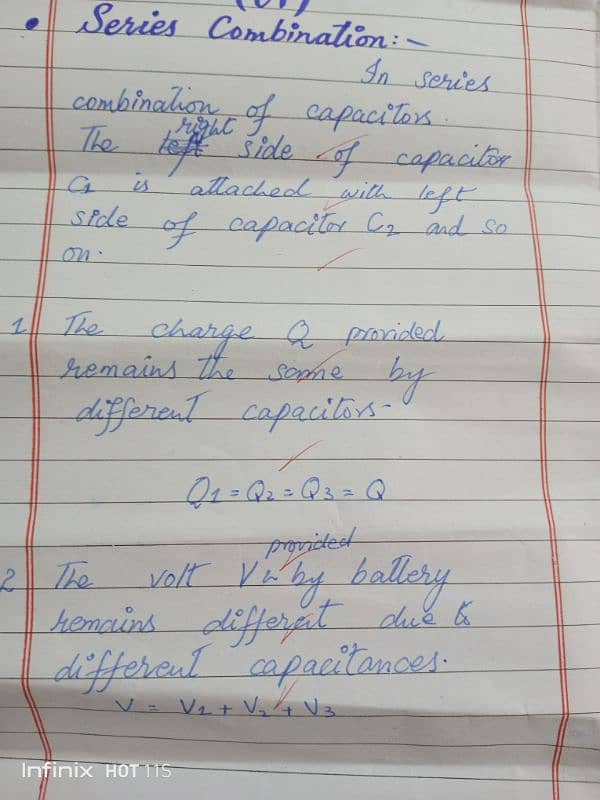 (07)
• Series Combination:-
In series
combination of capacitors.
The right side of capacitor
C1 is attached with left
side of capacitor C2 and so
on.
1 The charge Q provided
remains the same by
different capacitors-
Q1 = Q2 = Q3 = Q
provided
2 The volt V by battery
remains different due to
different capacitances.
V = V1 + V2 + V3
Infinix HOT 11S